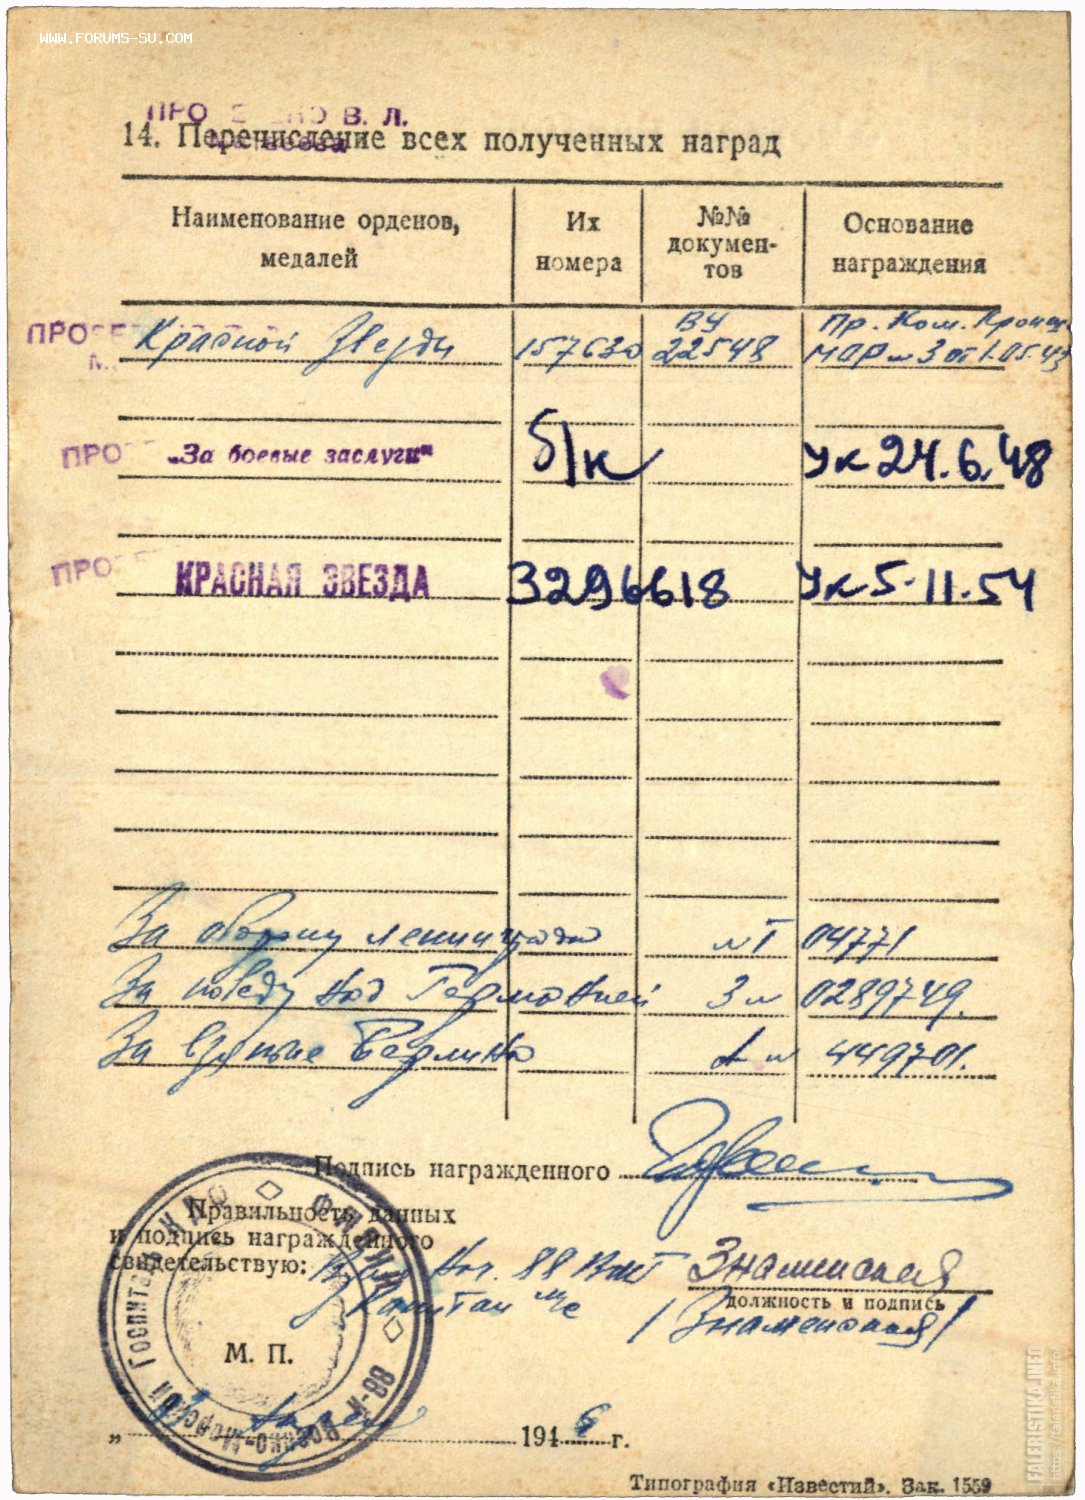 WWW.FORUMS-SU.COM
В. Л.
14. Перечисление всех полученных наград
Наименование орденов, медалей
Их номера
№№ документов
Основание награждения
Красной Звезды 157630 ВУ 22548 Пр. Ком. МОР № 3 от 1.05.43
"За боевые заслуги" б/к Ук 24.6.48
КРАСНАЯ ЗВЕЗДА 3296618 Ук 5.11.54
За оборону Ленинграда № Г 04771
За победу над Германией З № 0289749.
За взятие Берлина А № 449701.
Подпись награжденного
Правильность данных
и подпись награжденного
свидетельствую: Нач. 88 Знаменская
Капитан м/с должность и подпись
/Знаменская/
М. П.
Военно-Морской Госпиталь
ФИЛИАЛ
„ 1946 г.
Типография «Известий». Зак. 1559
FALERISTIKA.INFO
https://faleristika.info